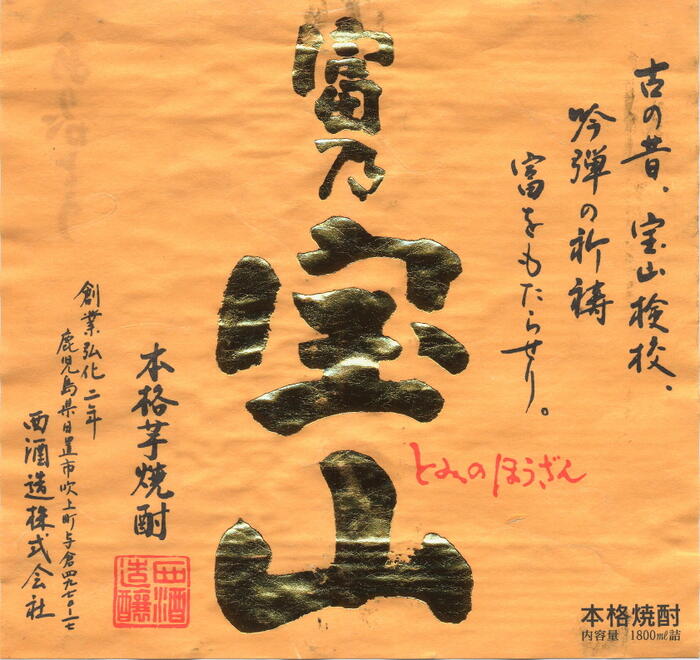 古の昔、宝山検校、
吟弾の祈祷
富をもたらせり。
富乃
宝
山
とみのほうざん
本格芋焼酎
創業弘化二年
鹿児島県日置市吹上町与倉四九七〇-一七
西酒造株式会社
西酒
造醸
本格焼酎
内容量 1800㎖詰